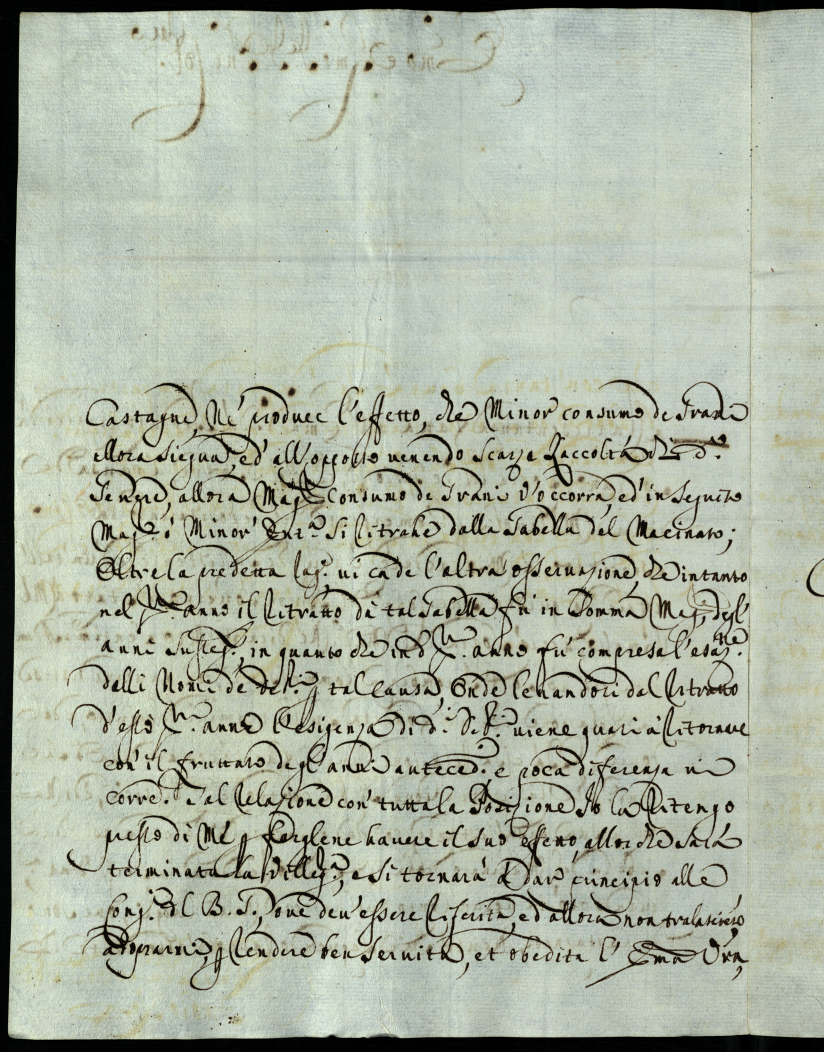 Castagne, Né produce l'effetto, che Minor consumo de Grani
allora siegua, ed' all'opposto uenendo Scarza Raccolta di d.º
Genere, allora Mag.r Condumo de Grani v'occorra, ed' in Seguito
Mag.r ò Minor' Ent.a Si Ritrahe dalla Gabella del Macinato;
Oltre la predetta Rag.e ui cade l'altra osseruazione, che intanto
nel P.º anno il Ritratto di tal Gabella fù in Somma Mag.r degl'
anni Susseg.ti, in quanto che in d.º P.º anno fù compresa l'esaz.ne
delli Nomi de Deb.ri p tal causa, Onde leuandosi dal Ritratto
d'esso P.º anno l'esigenza di d.i Deb.ri uiene quasi à Ritornare
con' il fruttato degl'anni anteced.ti e poca diferenza ui
corre. Tal Relazione con' tutta la Posizione Io la Ritengo
presso di Mé p farglene hauere il suo effetto, allor che sarà
terminata la Villeg.ra, e si tornarà à Dar' principio alle
Cong.ni del B. G., oue deu'essere Riferita, ed allora non tralascierò
adoprarmi, p Rendere ben seruita, et obedita l' Em̃a Vr̃a,